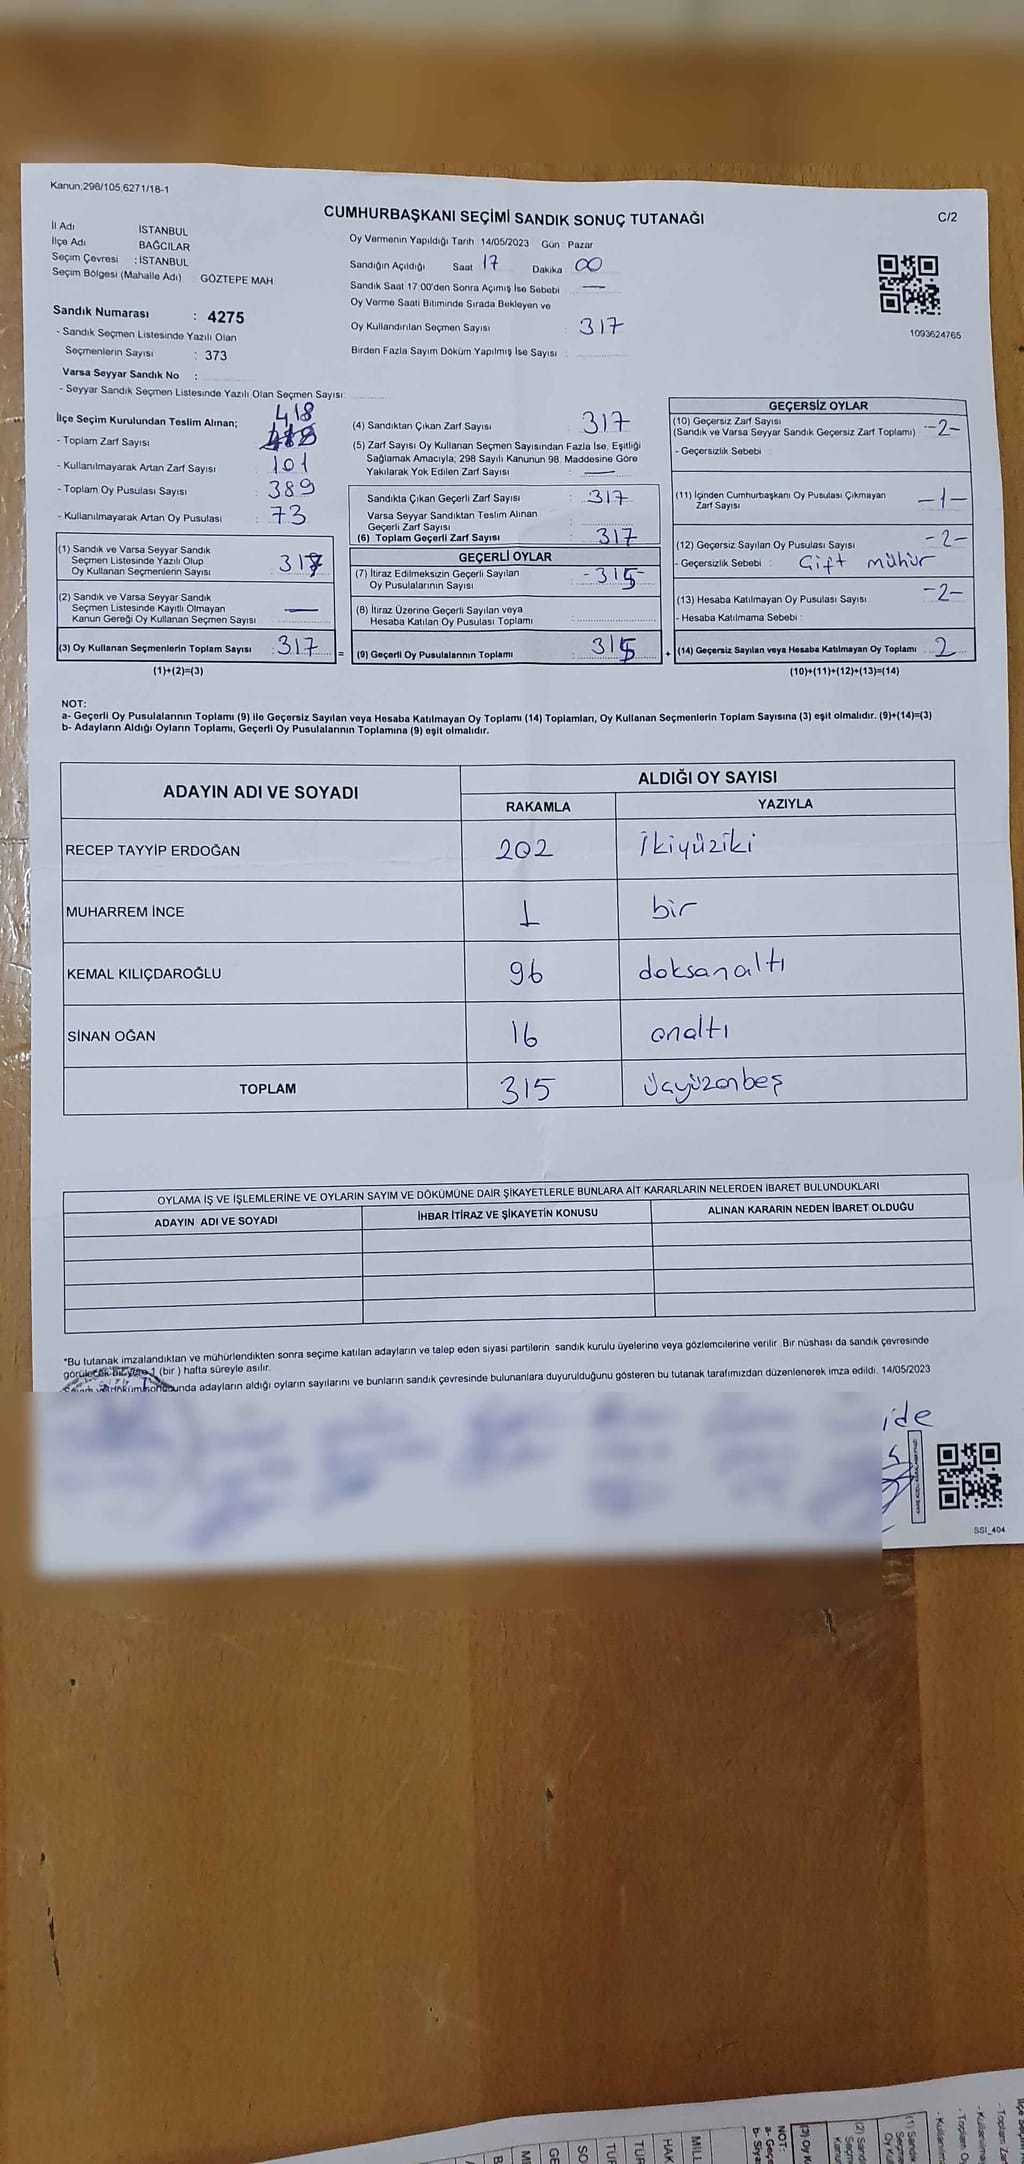 Kanun.298/105.6271/18-1
CUMHURBAŞKANI SEÇİMİ SANDIK SONUÇ TUTANAĞI
C/2
İl Adı İSTANBUL
İlçe Adı BAĞCILAR
Seçim Çevresi : İSTANBUL
Seçim Bölgesi (Mahalle Adı) GÖZTEPE MAH
Sandık Numarası : 4275
- Sandık Seçmen Listesinde Yazılı Olan
Seçmenlerin Sayısı : 373
Varsa Seyyar Sandık No :
- Seyyar Sandık Seçmen Listesinde Yazılı Olan Seçmen Sayısı:
Oy Vermenin Yapıldığı Tarih 14/05/2023 Gün Pazar
Sandığın Açıldığı Saat 17 Dakika 00
Sandık Saat 17:00'den Sonra Açımış İse Sebebi : —
Oy Verme Saati Bitiminde Sırada Bekleyen ve
Oy Kullandırılan Seçmen Sayısı : 317
Birden Fazla Sayım Döküm Yapılmış İse Sayısı :
1093624765
İlçe Seçim Kurulundan Teslim Alınan; 418
- Toplam Zarf Sayısı
- Kullanılmayarak Artan Zarf Sayısı : 101
- Toplam Oy Pusulası Sayısı : 389
- Kullanılmayarak Artan Oy Pusulası : 73
(1) Sandık ve Varsa Seyyar Sandık
Seçmen Listesinde Yazılı Olup
Oy Kullanan Seçmenlerin Sayısı : 317
(2) Sandık ve Varsa Seyyar Sandık
Seçmen Listesinde Kayıtlı Olmayan
Kanun Gereği Oy Kullanan Seçmen Sayısı : —
(3) Oy Kullanan Seçmenlerin Toplam Sayısı : 317 =
(1)+(2)=(3)
(4) Sandıktan Çıkan Zarf Sayısı : 317
(5) Zarf Sayısı Oy Kullanan Seçmen Sayısından Fazla İse, Eşitliği
Sağlamak Amacıyla, 298 Sayılı Kanunun 98. Maddesine Göre
Yakılarak Yok Edilen Zarf Sayısı : —
Sandıkta Çıkan Geçerli Zarf Sayısı : 317
Varsa Seyyar Sandıktan Teslim Alınan
Geçerli Zarf Sayısı
(6) Toplam Geçerli Zarf Sayısı : 317
GEÇERLİ OYLAR
(7) İtiraz Edilmeksizin Geçerli Sayılan
Oy Pusulalarının Sayısı : -315-
(8) İtiraz Üzerine Geçerli Sayılan veya
Hesaba Katılan Oy Pusulası Toplamı :
(9) Geçerli Oy Pusulalarının Toplamı : 315 +
GEÇERSİZ OYLAR
(10) Geçersiz Zarf Sayısı
(Sandık ve Varsa Seyyar Sandık Geçersiz Zarf Toplamı) -2-
- Geçersizlik Sebebi :
(11) İçinden Cumhurbaşkanı Oy Pusulası Çıkmayan
Zarf Sayısı -1-
(12) Geçersiz Sayılan Oy Pusulası Sayısı -2-
- Geçersizlik Sebebi : Çift mühür
(13) Hesaba Katılmayan Oy Pusulası Sayısı -2-
- Hesaba Katılmama Sebebi :
(14) Geçersiz Sayılan veya Hesaba Katılmayan Oy Toplamı : 2
(10)+(11)+(12)+(13)=(14)
NOT:
a- Geçerli Oy Pusulalarının Toplamı (9) ile Geçersiz Sayılan veya Hesaba Katılmayan Oy Toplamı (14) Toplamları, Oy Kullanan Seçmenlerin Toplam Sayısına (3) eşit olmalıdır. (9)+(14)=(3)
b- Adayların Aldığı Oyların Toplamı, Geçerli Oy Pusulalarının Toplamına (9) eşit olmalıdır.
ADAYIN ADI VE SOYADI ALDIĞI OY SAYISI
RAKAMLA YAZIYLA
RECEP TAYYİP ERDOĞAN 202 İkiyüziki
MUHARREM İNCE 1 bir
KEMAL KILIÇDAROĞLU 96 doksanaltı
SİNAN OĞAN 16 onaltı
TOPLAM 315 Üçyüzonbeş
OYLAMA İŞ VE İŞLEMLERİNE VE OYLARIN SAYIM VE DÖKÜMÜNE DAİR ŞİKAYETLERLE BUNLARA AİT KARARLARIN NELERDEN İBARET BULUNDUKLARI
ADAYIN ADI VE SOYADI İHBAR İTİRAZ VE ŞİKAYETİN KONUSU ALINAN KARARIN NEDEN İBARET OLDUĞU
*Bu tutanak imzalandıktan ve mühürlendikten sonra seçime katılan adayların ve talep eden siyasi partilerin sandık kurulu üyelerine veya gözlemcilerine verilir. Bir nüshası da sandık çevresinde
görülecek bir yere 1 (bir) hafta süreyle asılır.
Sayım ve döküm sonucunda adayların aldığı oyların sayılarını ve bunların sandık çevresinde bulunanlara duyurulduğunu gösteren bu tutanak tarafımızdan düzenlenerek imza edildi. 14/05/2023
ide
SSI_404